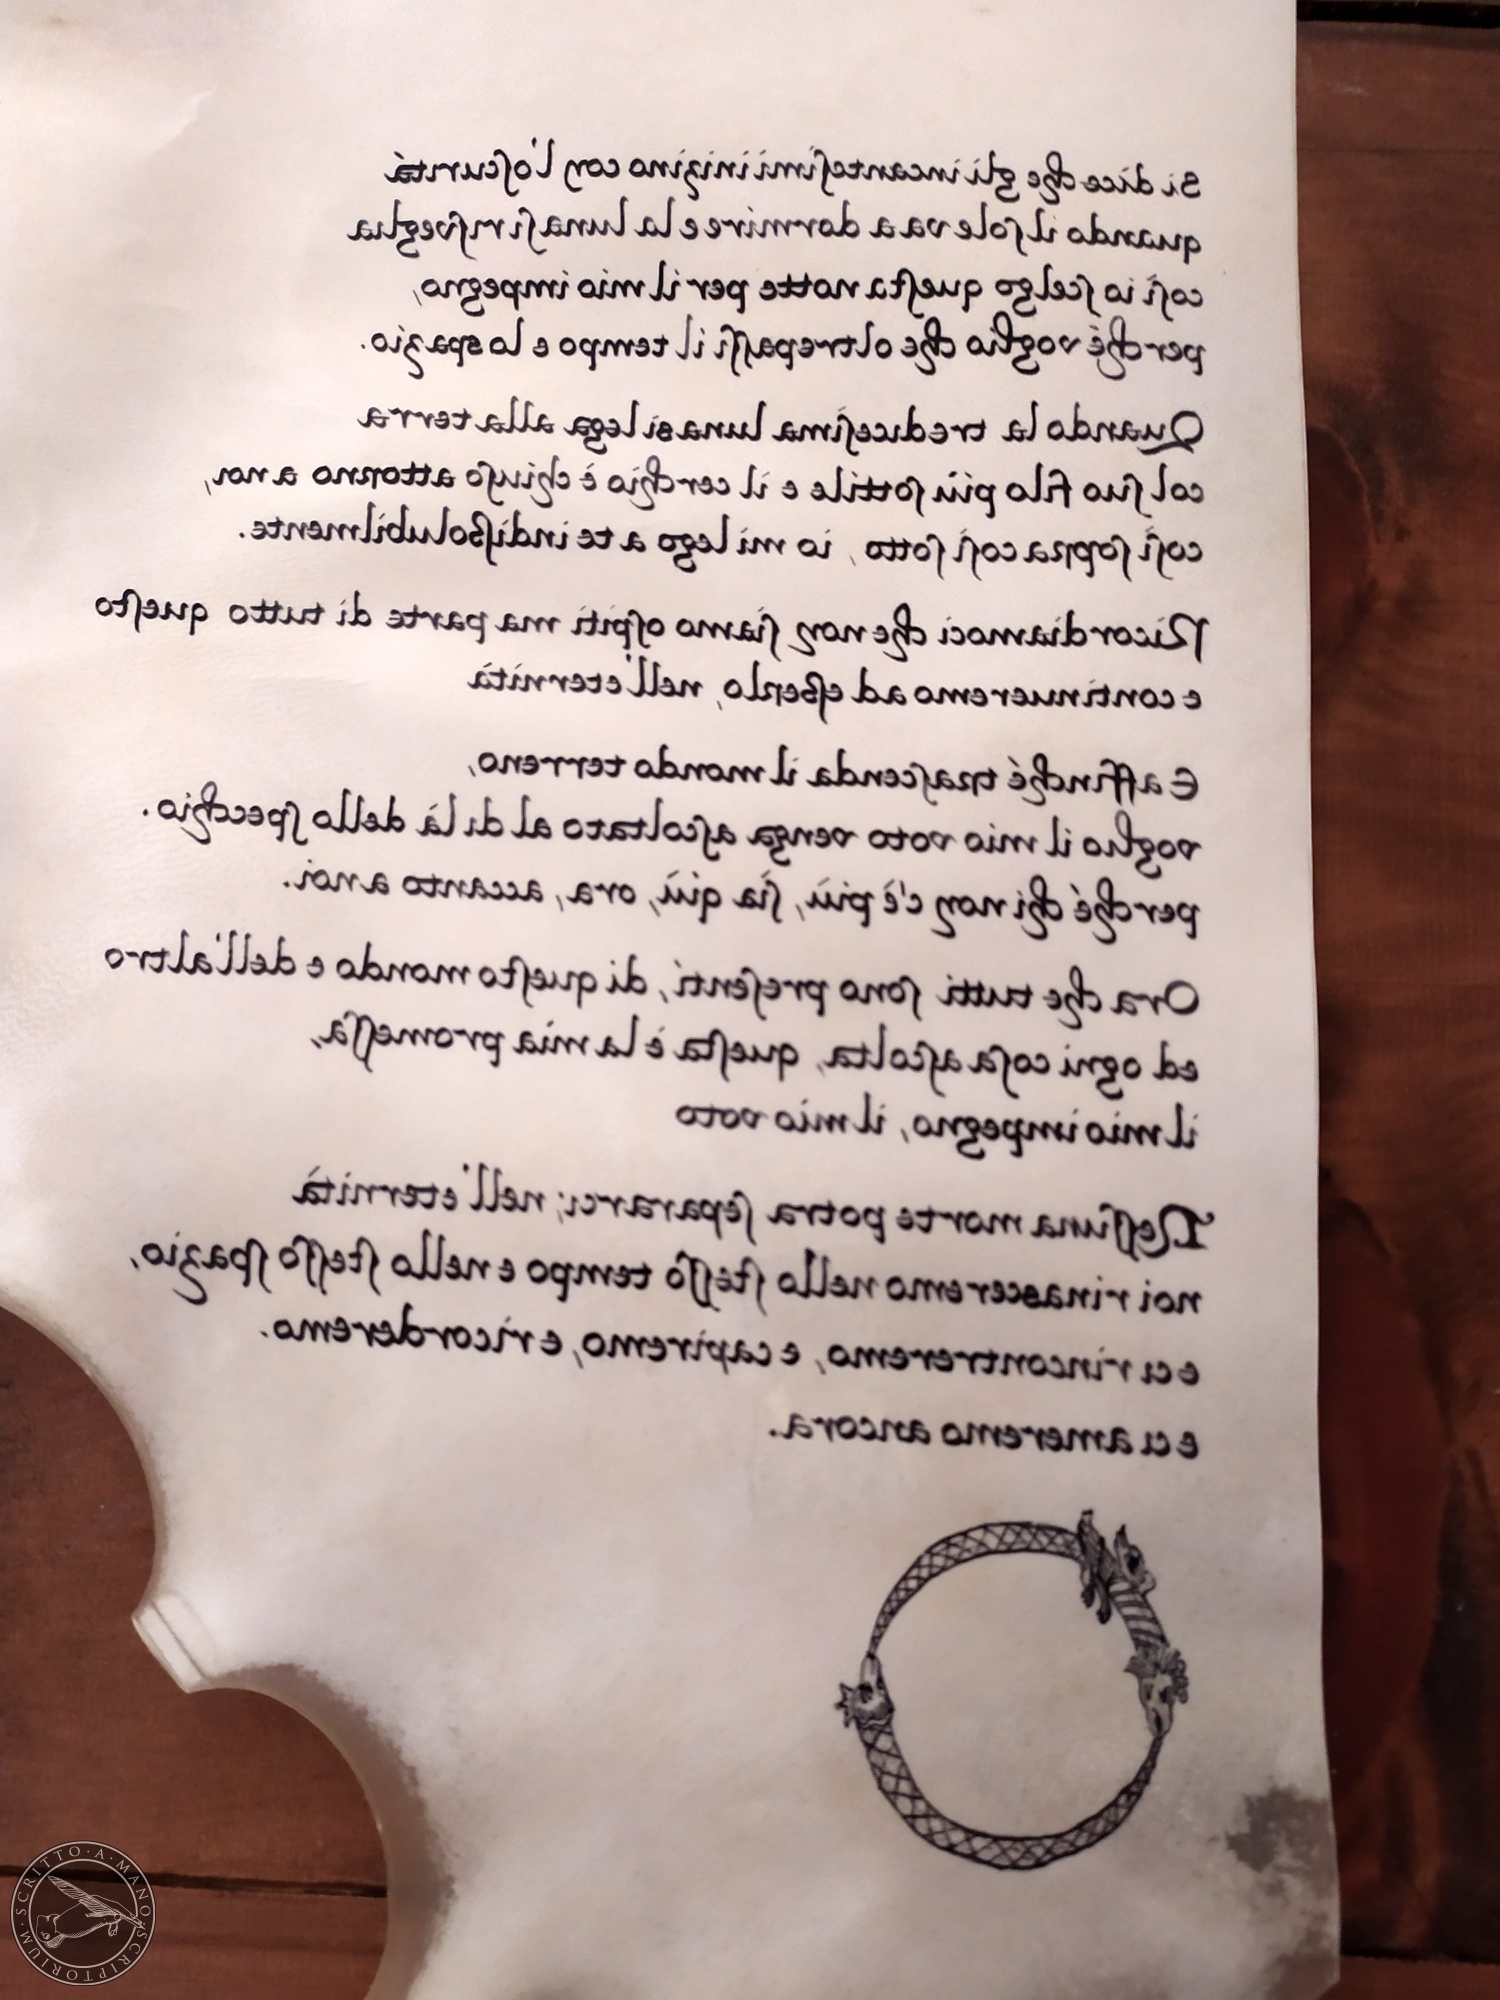 Si dice che gli incantesimi inizino con l'oscuritá
quando il sole va a dormire e la luna si risveglia
così io scelgo questa notte per il mio impegno,
perché voglio che oltrepassi il tempo e lo spazio.
Quando la tredicesima luna si lega alla terra
col suo filo più sottile e il cerchio è chiuso attorno a noi,
così sopra così sotto, io mi lego a te indissolubilmente.
Ricordiamoci che non siamo ospiti ma parte di tutto questo
e continueremo ad esserlo, nell'eternità
E affinché trascenda il mondo terreno,
voglio il mio voto venga ascoltato al di là dello specchio.
perché chi non c'è più, sia qiù, ora, accanto a noi.
Ora che tutti sono presenti, di questo mondo e dell'altro
ed ogni cosa ascolta, questa è la mia promessa,
il mio impegno, il mio voto
Nessuna morte potra separarci; nell'eternità
noi rinasceremo nello stesso tempo e nello stesso spazio,
e ci rincontreremo, e capiremo, e ricorderemo.
e ci ameremo ancora.
SCRITTO·A·MANO·SCRIPTORIUM·